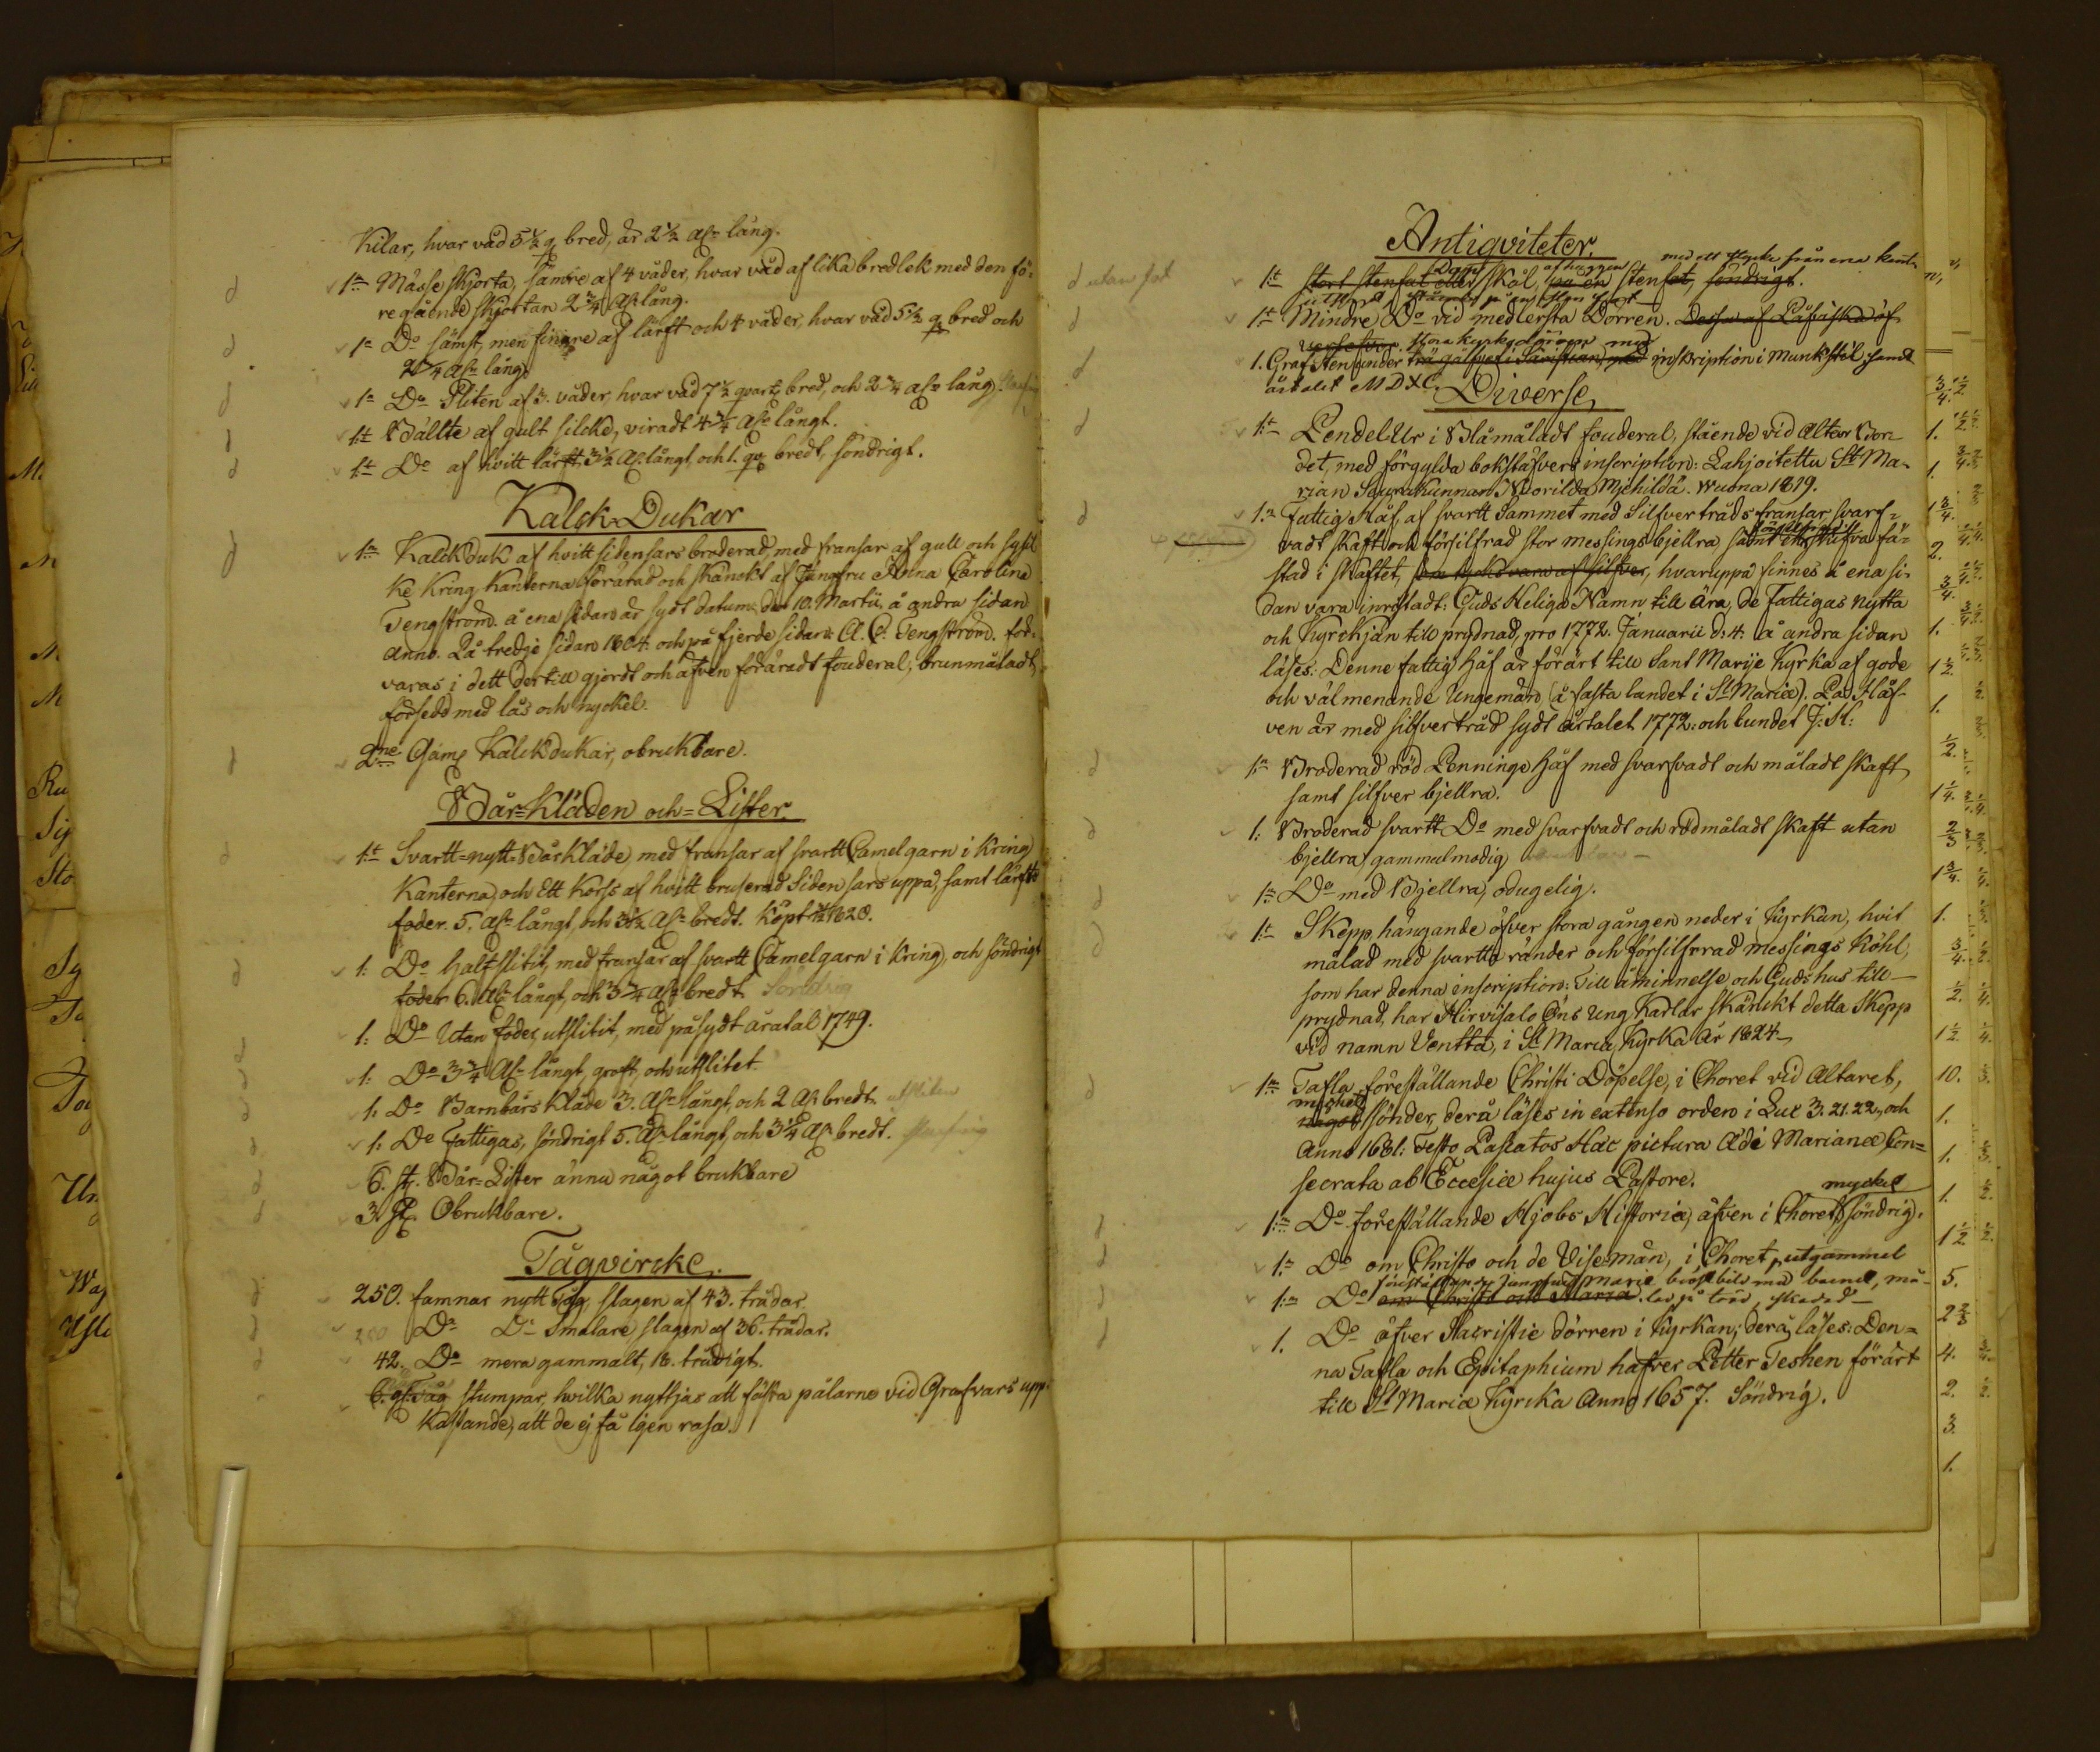 Kilar, hvar våd 5½ q bred, är 2½ aln lång.
1:n Mässe skjorta, sämre af 4 våder, hvar våd af lika bredlek med den fö-
regående skjortan 2¾ aln lång.
1:n Do sämst, men finare af lärft och 4 våder, hvar våd 5½ q bred och
2¼ aln lång.
1:n Do Sliten af 3. våder, hvar våd 7½ qvart. bred, och 2¾ aln lång.
1:t Bällte af gult silcke, viradt 4¾ aln långt.
1:t Do af hvitt lärft, 3½ al. långt, och 1. qv. bredt, söndrigt.
Kalck-Dukar
1:n Kalckduk af hvitt sidensars broderad, med fransar af gull och syst
ke kring kanterna förärad och skänckt af Jungfru Anna Carolina
Tengström. å ena sidan är sydt datum, den 10. Martii, å andra sidan
anno. På tredje sidan 1804. och på fjerde sidan: A. C. Tengström. förvaras
varas i dett dertill gjordt och äfven föräradt fouderal, brunmåladt,
försedd med lås och nyckel.
2:ne Gaml. Kalckdukar, obrukbare.
Bår-Kläden och-Lister.
1:t Svartt-nytt-Bårkläde med fransar af svartt Camelgarn i kring
Kanterna, och Ett Korss af hvitt bruserad Siden sars uppå, samt lärfts
foder. 5. aln långt, och 3½ aln bredt. Köpt 1828.
1: Do halfslitit, med fransar af svartt Camelgarn i kring, och söndrigt
foder 6. aln långt, och 3¾ aln bredt
1: Do Utan foder, utslitit, med påsydt åratal 1749.
1: Do 3¾ aln långt, groft, och utslitet.
1: Do Barnbårs Kläde 3. aln långt, och 2 al. bredt utslitin
1: Do Fattigas, söndrigt 5. aln långt, och 3¼ al. bredt.
6. st. Bår-Lister ännu något brukbare
3. st. Obrukbare.
Tågvircke.
250. famnar nytt Tåg, slagen af 43. trådar.
200 Do Do Smalare, slagen af 36. trådar.
42. Do mera gammalt, 18. trådigt.
6. st. Tåg stumpar, hvilka nyttjas att fästa pålarne vid Grafvars upp-
kastande, att de ej få igen rasa.
Antiqviteter.
med ett stycke från ena kant
d utan fot
1:t stort stenfat eller skål, på en stenfot, söndrigt.
1:t Mindre Do vid medlersta Dörren.
stora kyrkodörren med
1. Graf Sten under inskription i Munkstil samt
årtalet MDXC.
Diverse,
1:t Pendel-Ur i Blåmåladt fouderal, stående vid Altar Bor-
det, med förgylda bokstäfvers inscription: Lahjoitettu St Ma-
rian Seurakunnan Nuorilda Mjehildä. Wuona 1819.
1:n Fattig Håf, af svartt Sammet med Silfver tråds fransar, svarf-
vadt skaft och försilfrad stor messings bjellra, samt en skifva fä-
stad i skaftet, som tycks vara af silfver, hvaruppå finnes å ena si-
dan vara inristadt: Guds Heliga Namn till ära, de Fattigas nytta
och Kyrckjan till prydnad, pro 1772. Januarii d. 4. å andra sidan
läses: Denne fattig håf är förärt till Sant Marije Kyrka af gode
och välmenande Ungemän (å fasta landet i St Mariæ). På Håf-
ven är med silfvertråd sydt årtalet 1772. och bundet J: H:
1:n Broderad röd Penninge håf med svarfvadt och måladt skaft,
samt silfver bjellra.
1: Broderad svartt Do med svarfvadt och rödmåladt skaft utan
bjellra, gammulmodig
1:n Do med Bjellra, odugelig.
1:t Skepp, hängande öfver stora gången neder i Kyrkan, hvit
målad med svartta ränder och försilfrad messings köhl,
som har denna inscription: Till åminnelse och Guds hus till
prydnad, har Hirvisalo Öns Ung Karlar skänckt detta Skepp
vid namn Ventta, i St Maria Kyrka år 1824
1:n Tafla, föreställande Christi Döpelse, i Choret vid Altaret,
mycket
något sönder, derå läses in extenso orden i Luc 3. 21. 22, och
Anno 1681: Festo Pascatos Hæc pictura Ædi Marianæ Con-
secrata ab Eccesiæ hujus Pastore.
mycket
1:n Do föreställande Hjobs Historia, äfven i Choret, söndrig.
1:n Do om Christo och de Vise-män, i Choret, utgammel
föreställande Jungfru Marie bröstbild med barnet, må-
1:n Do om Christo och Maria. lad på träd, skadad
1. Do öfver Sacristie dörren i Kyrkan, derå läses: Den-
na Tafla och Epitaphium hafver Petter Teshen förärt
till St Mariæ Kyrka Anno 1657. Söndrig.